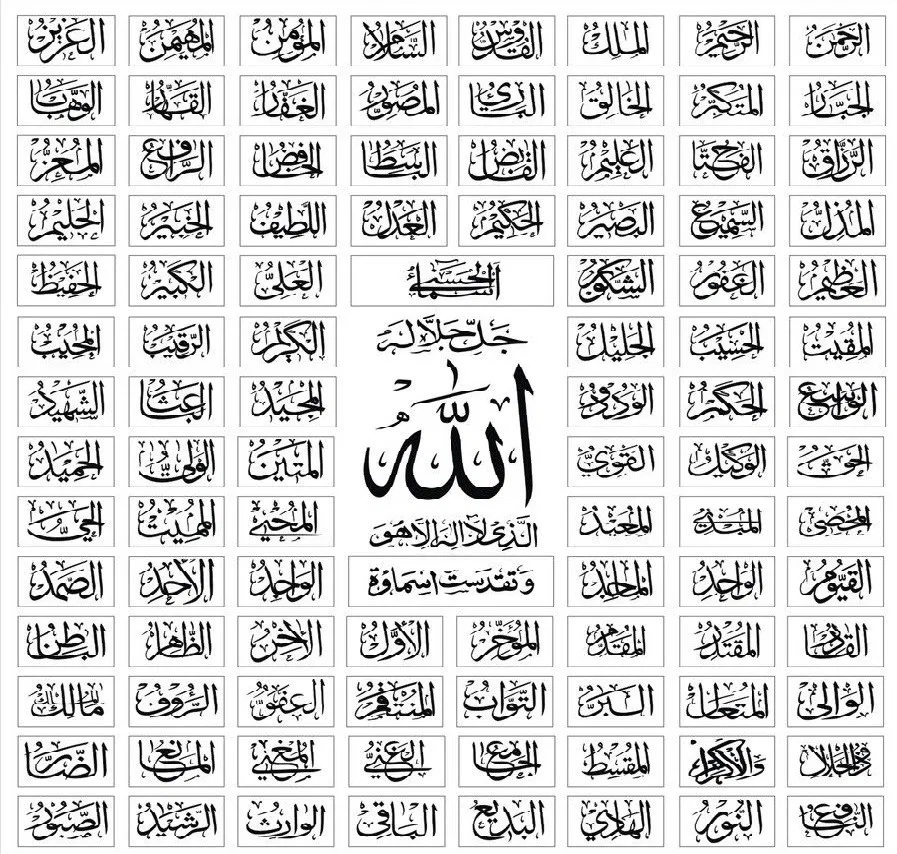 الرحمن الرحيم الملك القدوس السلام المؤمن المهيمن العزيز
الجبار المتكبر الخالق الباري المصور الغفار القهار الوهاب
الرزاق الفتاح العليم القابض الباسط الخافض الرافع المعز
المذل السميع البصير الحكيم العدل اللطيف الخبير الحليم
العظيم الغفور الشكور اسماء الحسنى العلي الكبير الحفيظ
المقيت الحسيب الجليل جل جلاله الكريم الرقيب المجيب
الواسع الحكيم الودود الله المجيد الباعث الشهيد
الحق الوكيل القوي المتين الولي الحميد
المحصي المبدئ المعيد الذي لا اله الا هو المحيي المميت الحي
القيوم الواجد الماجد وتقدست اسماؤه الواحد الاحد الصمد
القادر المقتدر المقدم المؤخر الاول الاخر الظاهر الباطن
الوالي المتعال البر التواب المنتقم العفو الرؤوف مالك الملك
ذو الجلال والاكرام المقسط الجامع الغني المغني المانع الضار
النافع النور الهادي البديع الباقي الوارث الرشيد الصبور